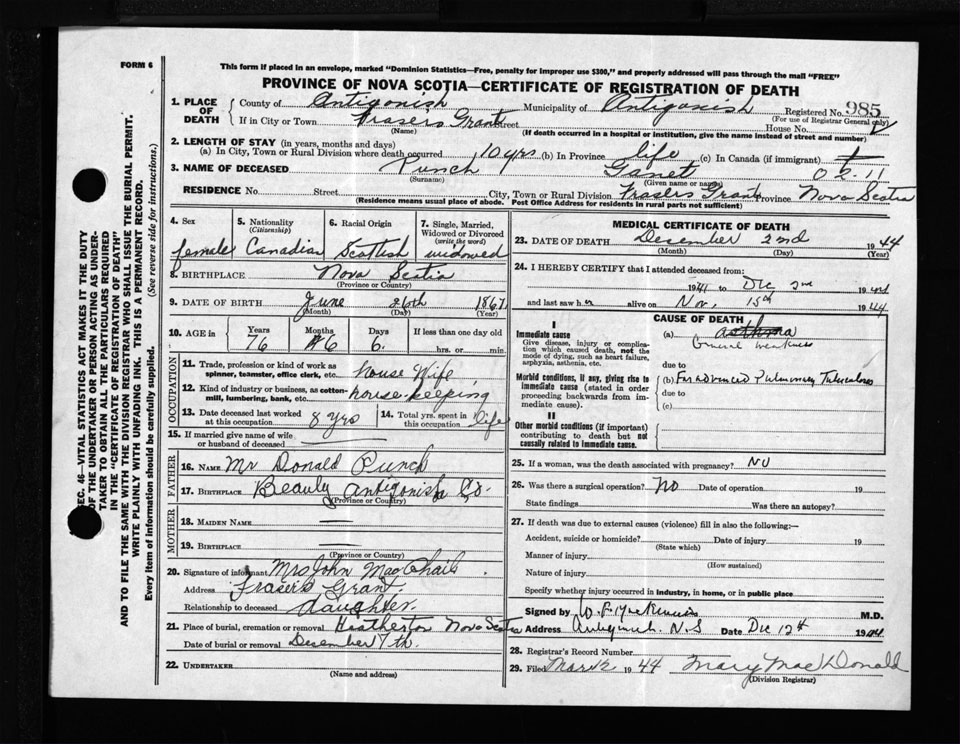 FORM 6
This form if placed in an envelope, marked "Dominion Statistics—Free, penalty for improper use $300," and properly addressed will pass through the mail "FREE"
PROVINCE OF NOVA SCOTIA—CERTIFICATE OF REGISTRATION OF DEATH
1. PLACE OF DEATH { County of Antigonish Municipality of Antigonish Registered No. 985
(For use of Registrar General only)
If in City or Town Frasers Grant Street House No.
(Name) (If death occurred in a hospital or institution, give its name instead of street and number)
2. LENGTH OF STAY (in years, months and days)
(a) In City, Town or Rural Division where death occurred 10 yrs (b) In Province life (c) In Canada (if immigrant)
3. NAME OF DECEASED Punch Janet
(Surname) (Given name or names)
RESIDENCE No. Street City, Town or Rural Division Frasers Grant Province Nova Scotia
(Residence means usual place of abode. Post Office Address for residents in rural parts not sufficient)
4. Sex female
5. Nationality (Citizenship) Canadian
6. Racial Origin Scottish
7. Single, Married, Widowed or Divorced (write the word) widowed
8. BIRTHPLACE Nova Scotia
(Province or Country)
9. DATE OF BIRTH June 26th 1867
(Month) (Day) (Year)
10. AGE in Years Months Days If less than one day old
76 6 6. hrs. or min.
OCCUPATION
11. Trade, profession or kind of work as spinner, teamster, office clerk, etc. house Wife
12. Kind of industry or business, as cotton-mill, lumbering, bank, etc. house-keeping
13. Date deceased last worked at this occupation 8 yrs
14. Total yrs. spent in this occupation life
15. If married give name of wife or husband of deceased
FATHER
16. NAME Mr Donald Punch
17. BIRTHPLACE Beauly Antigonish Co.
(Province or Country)
MOTHER
18. MAIDEN NAME
19. BIRTHPLACE
(Province or Country)
20. Signature of informant Mrs John MacPhail
Address Frasers Grant.
Relationship to deceased daughter.
21. Place of burial, cremation or removal Heatherton Nova Scotia
Date of burial or removal December 7th.
22. UNDERTAKER
(Name and address)
MEDICAL CERTIFICATE OF DEATH
23. DATE OF DEATH December 2nd 1944
(Month) (Day) (Year)
24. I HEREBY CERTIFY that I attended deceased from:
1941 to Dec 2nd
and last saw her alive on Nov. 15th 1944
CAUSE OF DEATH
I
Immediate cause
Give disease, injury or complication which caused death, not the mode of dying, such as heart failure, asphyxia, asthenia, etc.
(a) asthma
General weakness
due to
Morbid conditions, if any, giving rise to immediate cause (stated in order proceeding backwards from immediate cause).
(b) Far advanced Pulmonary Tuberculosis
due to
(c)
II
Other morbid conditions (if important) contributing to death but not causally related to immediate cause.
25. If a woman, was the death associated with pregnancy? NO
26. Was there a surgical operation? NO Date of operation 19
State findings Was there an autopsy?
27. If death was due to external causes (violence) fill in also the following:—
Accident, suicide or homicide? Date of injury 19
(State which)
Manner of injury
(How sustained)
Nature of injury
Specify whether injury occurred in industry, in home, or in public place
Signed by M.D.
Address Antigonish. N.S Date Dec 12th 1944
28. Registrar's Record Number
29. Filed 1944 Mary MacDonald
(Division Registrar)
SEC. 46—VITAL STATISTICS ACT MAKES IT THE DUTY
OF THE UNDERTAKER OR PERSON ACTING AS UNDER-
TAKER TO OBTAIN ALL THE PARTICULARS REQUIRED
IN THE "CERTIFICATE OF REGISTRATION OF DEATH"
AND TO FILE THE SAME WITH THE DIVISION REGISTRAR WHO SHALL ISSUE THE BURIAL PERMIT.
WRITE PLAINLY WITH UNFADING INK. THIS IS A PERMANENT RECORD.
Every item of information should be carefully supplied. (See reverse side for instructions.)